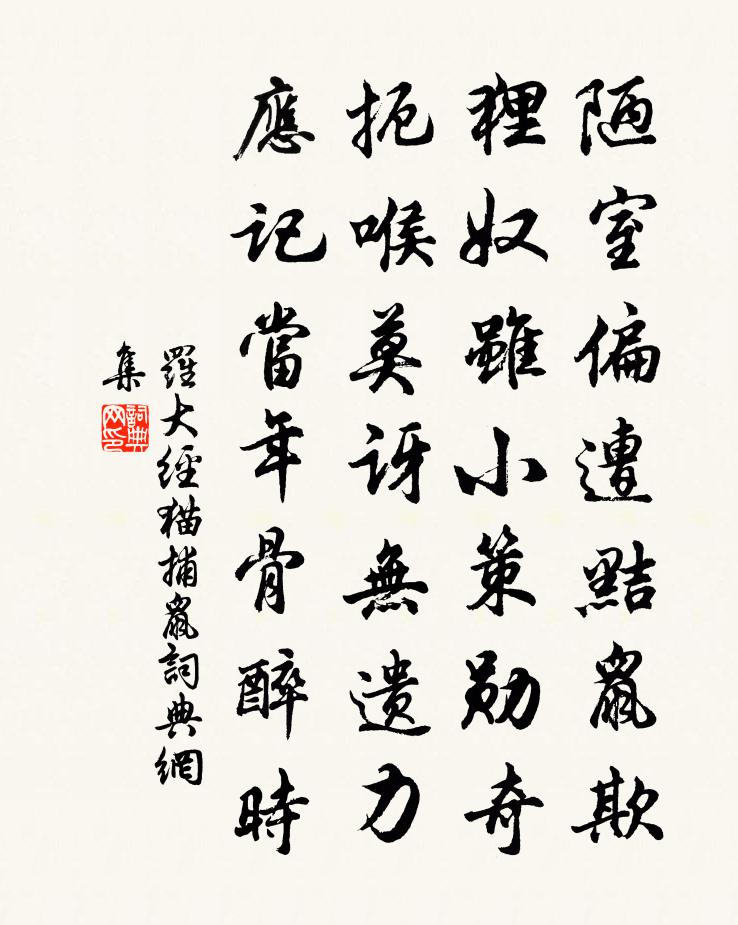 陋室偏遭黠鼠欺
狸奴雖小策勛奇
扼喉莫訝無遺力
應記當年骨醉時
羅大經猫捕鼠詞典網
集
詞典网印